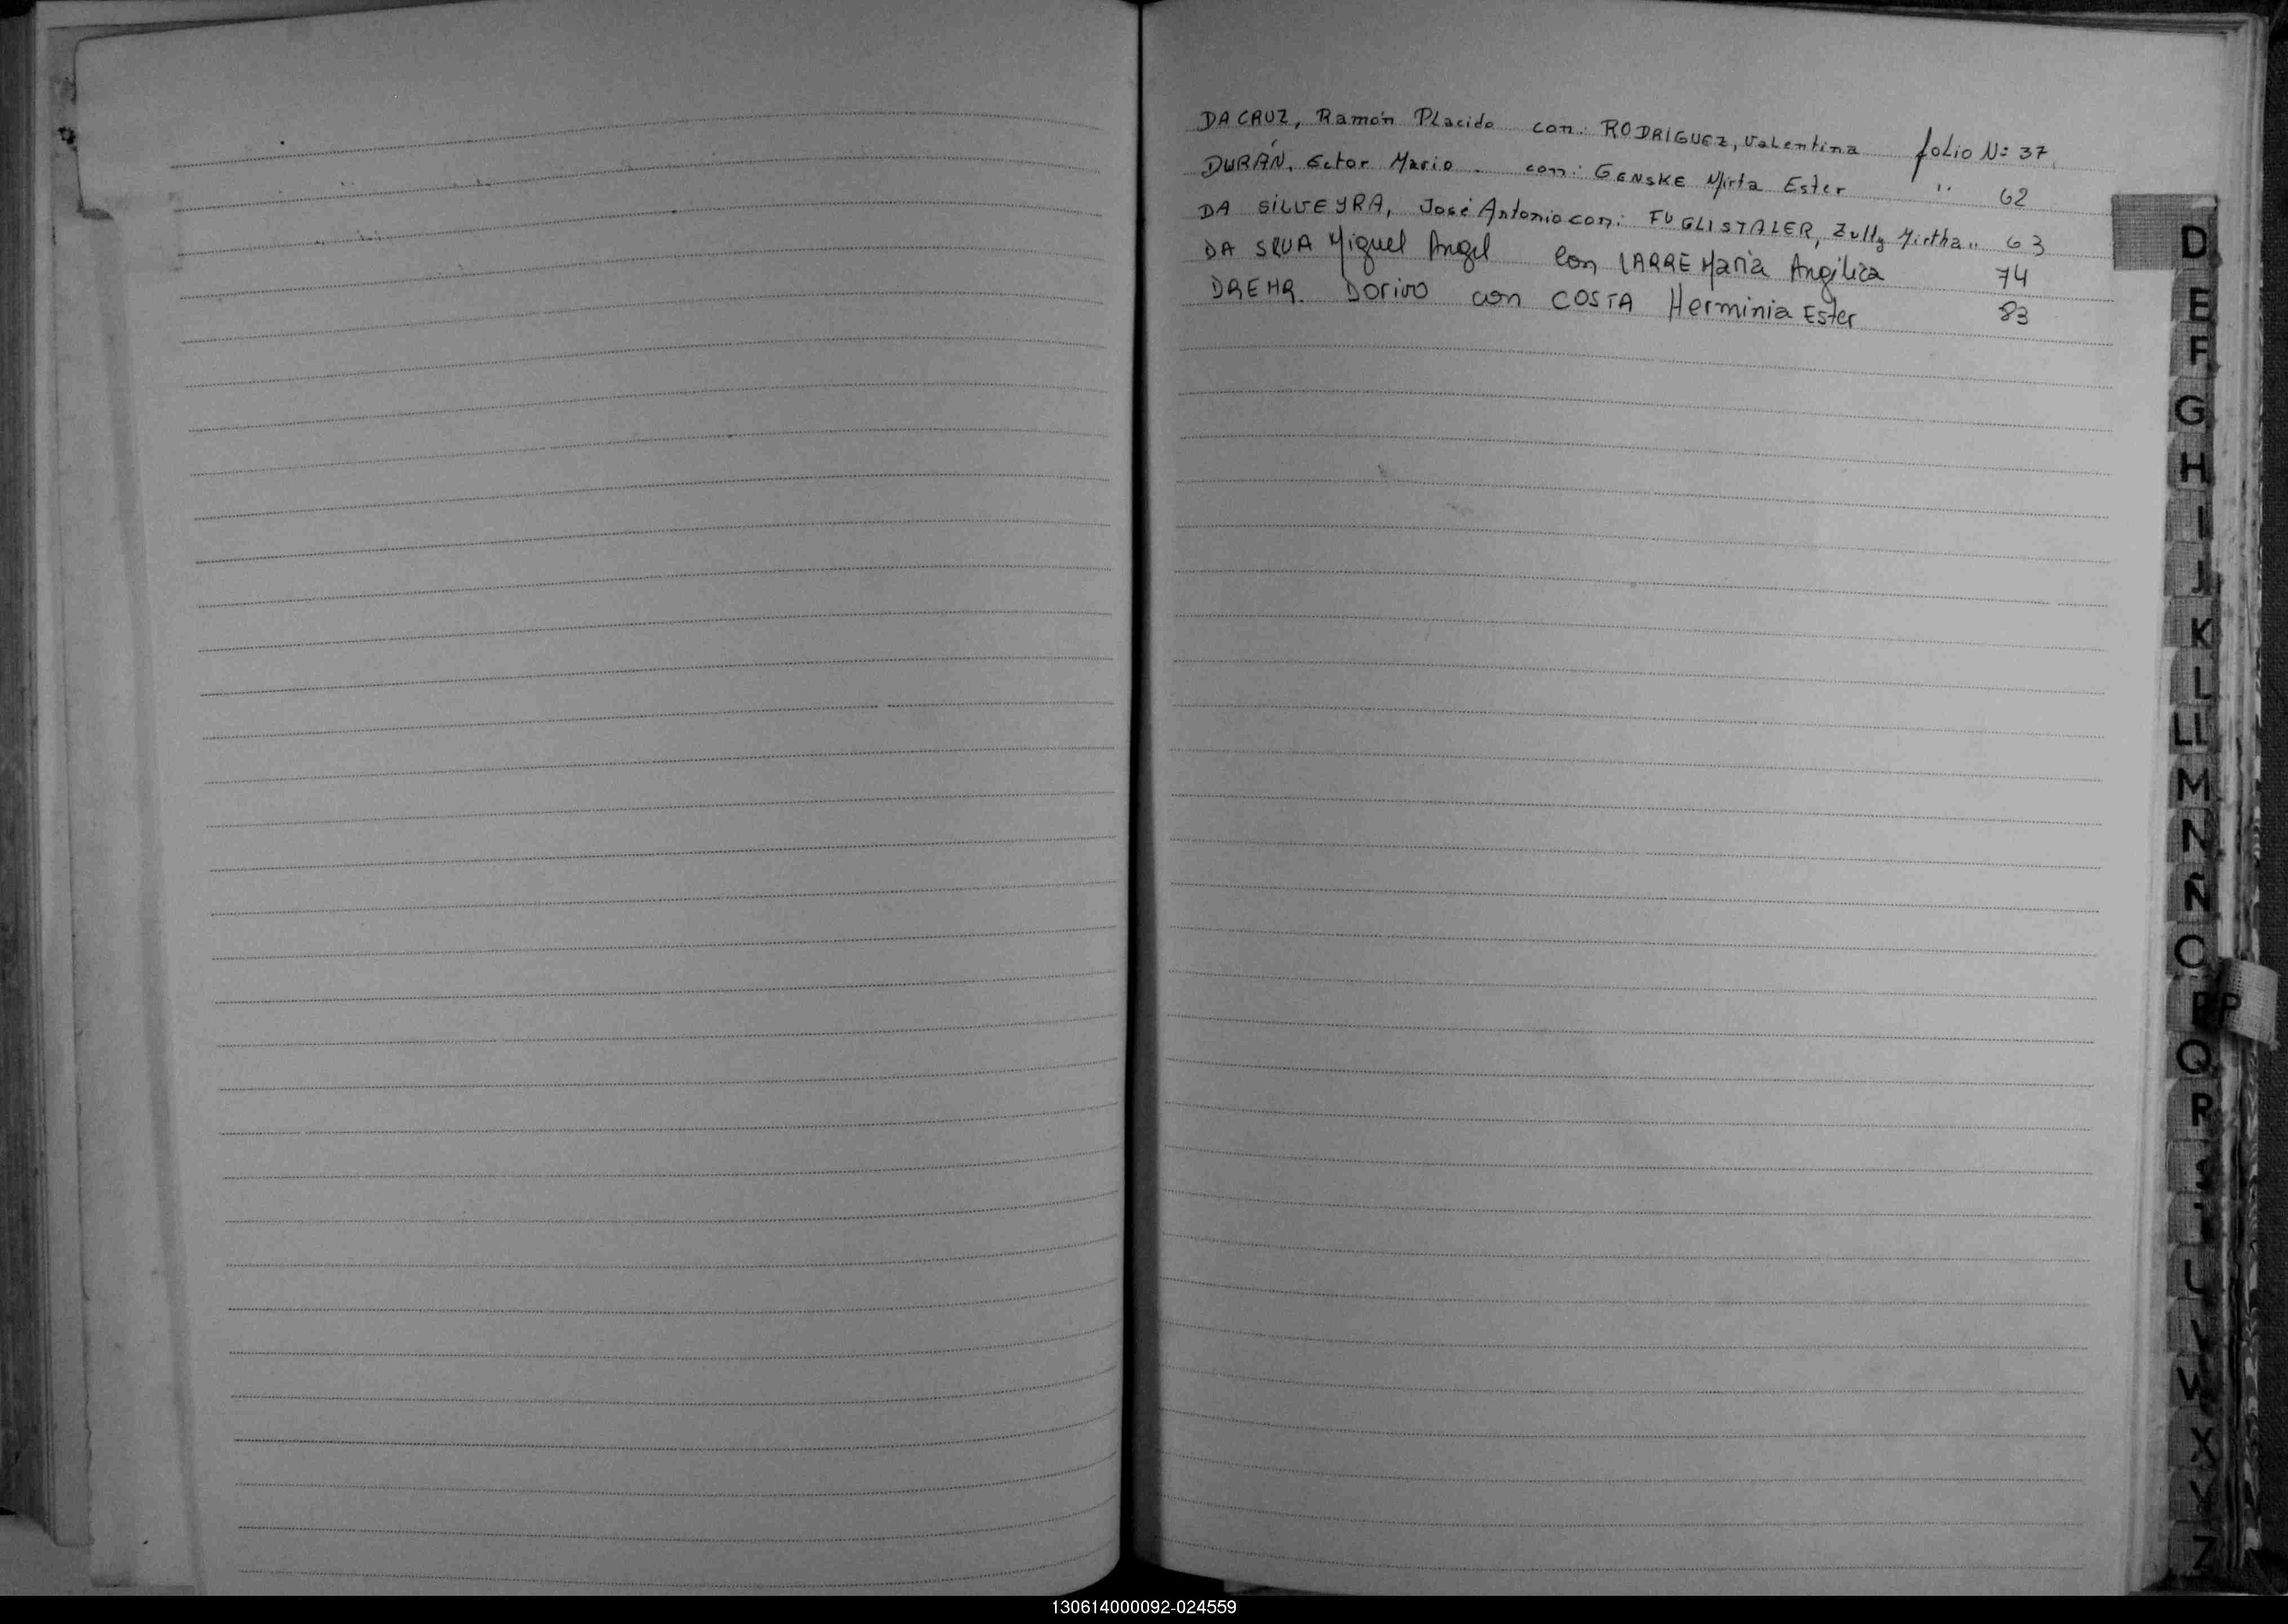 DA CRUZ, Ramón Placido con: RODRIGUEZ, Valentina folio Nº 37
DURÁN, Ector Mario. con: GENSKE Mirta Ester " 62
DA SILVEYRA, José Antonio con: FUGLISTALER, Zully Mirtha " 63
DA SILVA Miguel Angel con LARRE María Angélica 74
DREHR Dorivo con COSTA Herminia Ester 83
D
E
F
G
H
I
J
K
L
LL
M
N
Ñ
O
P P
Q
R
S
T
U
V
W
X
Y
Z
130614000092-024559